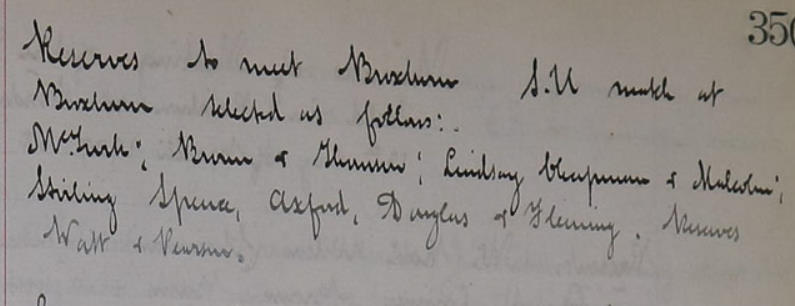 350
Reserves to meet Broxburn S.U match at
Broxburn selected as follows:.
McTurk; Brown & Thomson; Lindsay Chapman & Malcolm;
Stirling Spence, Axford, Douglas & Fleming. Reserves
Watt & Pearson.